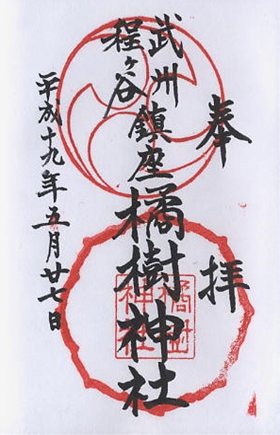 奉拝
武州
程ヶ谷
鎮座
橘樹神社
平成十九年五月廿七日
橘樹
神社